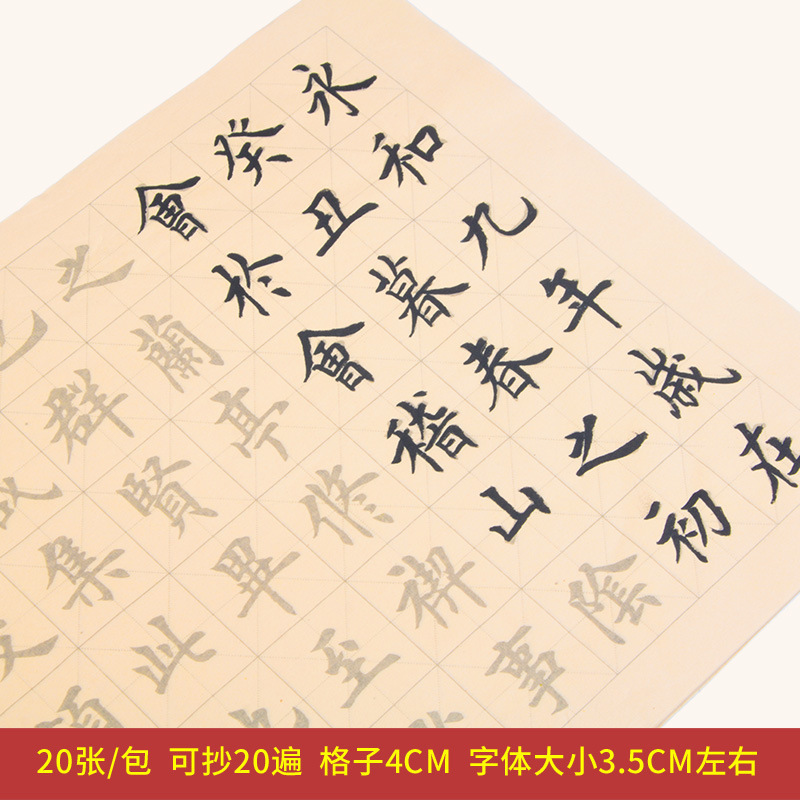 永和九年歲在
癸丑暮春之初
會於會稽山陰
之蘭亭脩禊事
也群賢畢至
咸集此
20张/包 可抄20遍 格子4CM 字体大小3.5CM左右